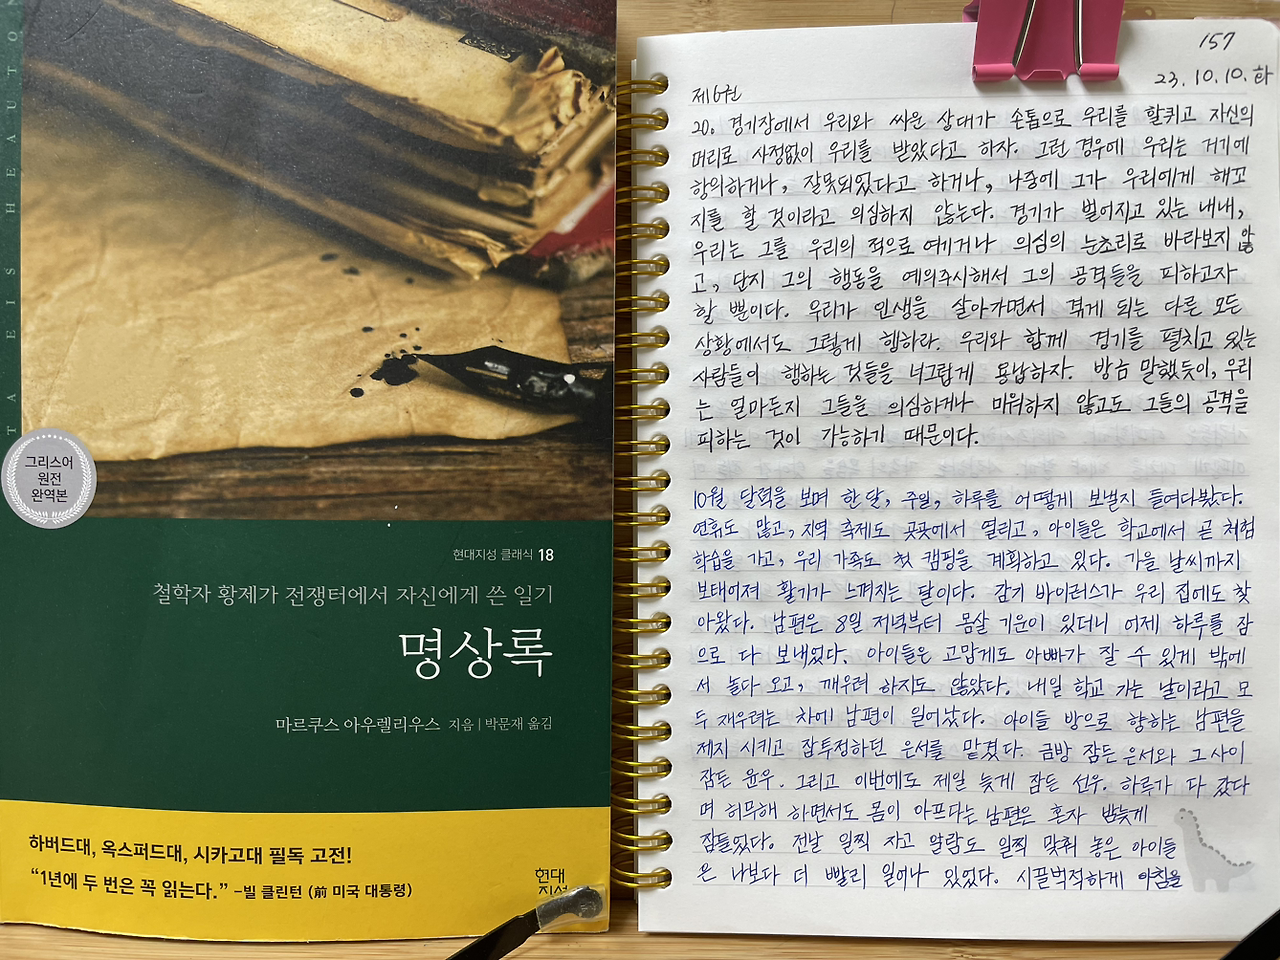 T A E I S H E A U T O N
그리스어
원전
완역본
현대지성 클래식 18
철학자 황제가 전쟁터에서 자신에게 쓴 일기
명상록
마르쿠스 아우렐리우스 지음 | 박문재 옮김
하버드대, 옥스퍼드대, 시카고대 필독 고전!
“1년에 두 번은 꼭 읽는다.” –빌 클린턴 (前 미국 대통령)
현대
지성
157
23.10.10.화
제6권
20. 경기장에서 우리와 싸운 상대가 손톱으로 우리를 할퀴고 자신의
머리로 사정없이 우리를 받았다고 하자. 그런 경우에 우리는 거기에
항의하거나, 잘못되었다고 하거나, 나중에 그가 우리에게 해꼬
지를 할 것이라고 의심하지 않는다. 경기가 벌어지고 있는 내내,
우리는 그를 우리의 적으로 여기거나 의심의 눈초리로 바라보지 않
고, 단지 그의 행동을 예의주시해서 그의 공격들을 피하고자
할 뿐이다. 우리가 인생을 살아가면서 겪게 되는 다른 모든
상황에서도 그렇게 행하라. 우리와 함께 경기를 펼치고 있는
사람들이 행하는 것들을 너그럽게 용납하자. 방금 말했듯이, 우리
는 얼마든지 그들을 의심하거나 미워하지 않고도 그들의 공격을
피하는 것이 가능하기 때문이다.
10월 달력을 보며 한달, 주일, 하루를 어떻게 보낼지 들여다봤다.
연휴도 많고, 지역 축제도 곳곳에서 열리고, 아이들은 학교에서 곧 체험
학습을 가고, 우리 가족도 첫 캠핑을 계획하고 있다. 가을 날씨까지
보태어져 활기가 느껴지는 달이다. 감기 바이러스가 우리 집에도 찾
아왔다. 남편은 8일 저녁부터 몸살 기운이 있더니 어제 하루를 잠
으로 다 보내었다. 아이들은 고맙게도 아빠가 잘 수 있게 밖에
서 놀다 오고, 깨우려 하지도 않았다. 내일 학교 가는 날이라고 모
두 재우려는 차에 남편이 일어났다. 아이들 방으로 향하는 남편을
제지 시키고 잠투정하던 은서를 맡겼다. 금방 잠든 은서와 그 사이
잠든 윤우. 그리고 이번에도 제일 늦게 잠든 선우. 하루가 다 갔다
며 허무해 하면서도 몸이 아프다는 남편은 혼자 밤늦게
잠들었다. 전날 일찍 자고 알람도 일찍 맞춰 놓은 아이들
은 나보다 더 빨리 일어나 있었다. 시끌벅적하게 아침을